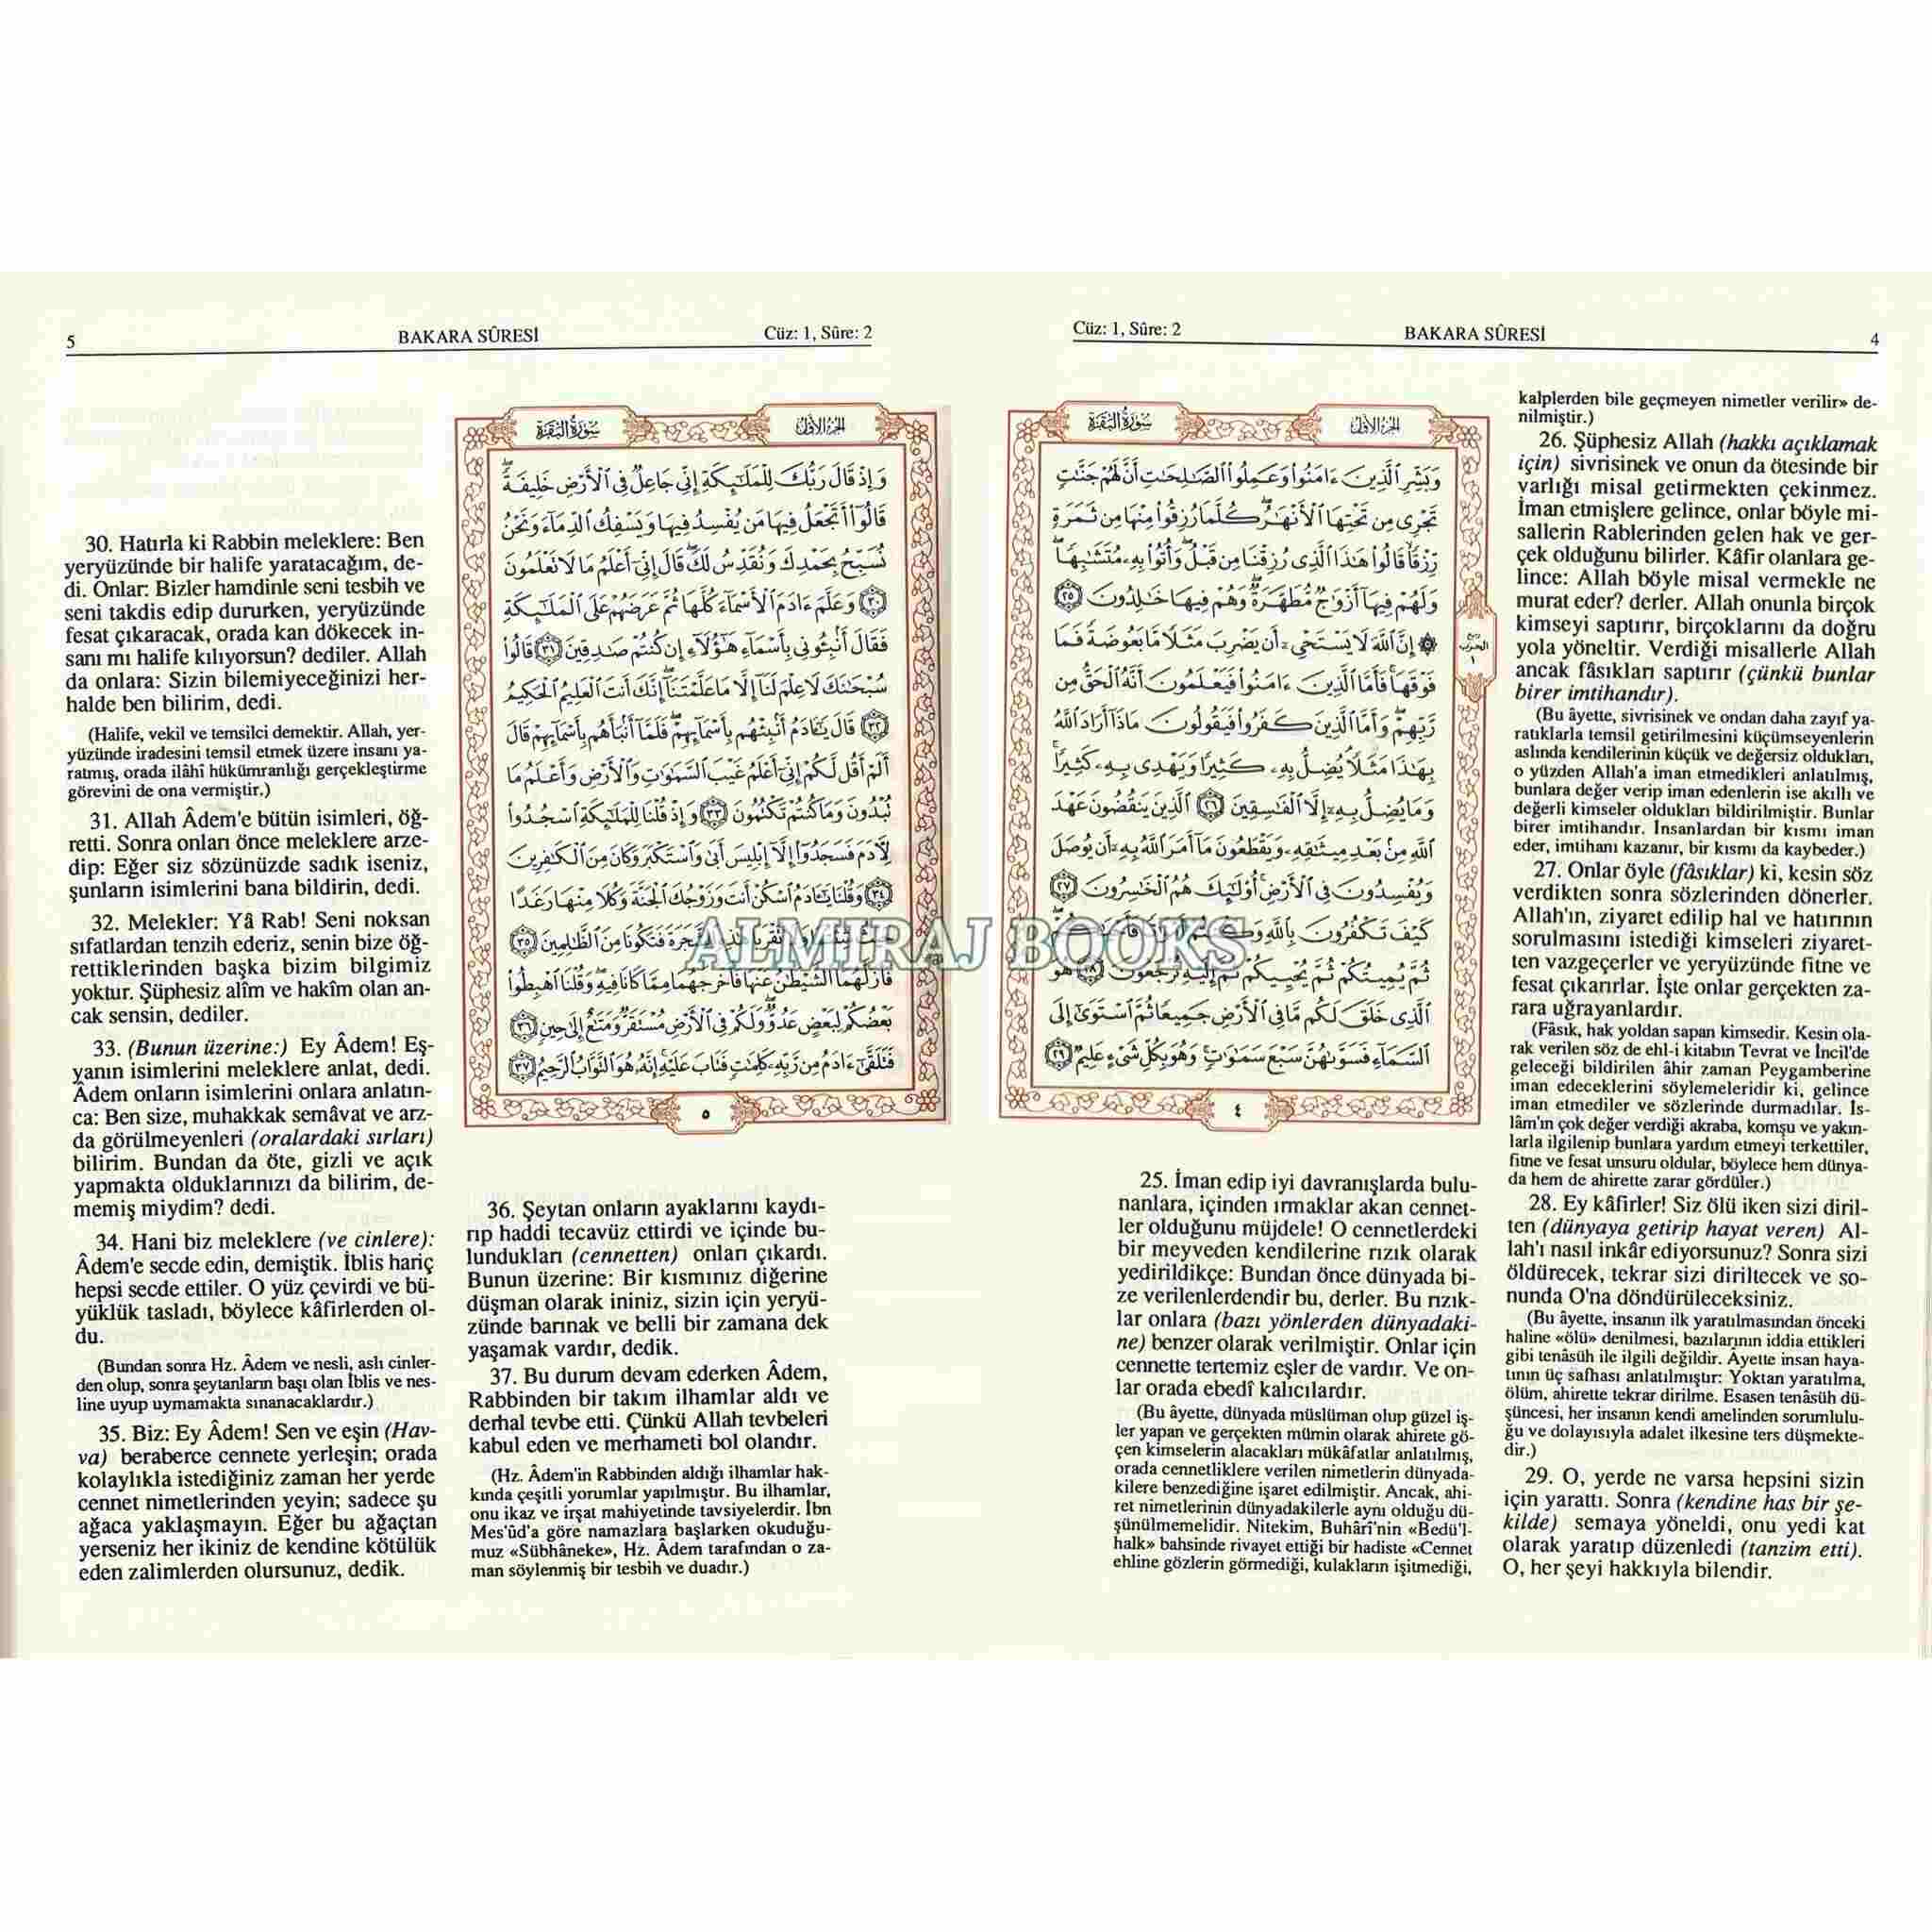 Cüz: 1, Sûre: 2 BAKARA SÛRESİ 4
سورة البقرة الجزء الأول
وَبَشِّرِ ٱلَّذِينَ ءَامَنُوا۟ وَعَمِلُوا۟ ٱلصَّٰلِحَٰتِ أَنَّ لَهُمْ جَنَّٰتٍ
تَجْرِى مِن تَحْتِهَا ٱلْأَنْهَٰرُ ۖ كُلَّمَا رُزِقُوا۟ مِنْهَا مِن ثَمَرَةٍ
رِّزْقًا ۙ قَالُوا۟ هَٰذَا ٱلَّذِى رُزِقْنَا مِن قَبْلُ ۖ وَأُتُوا۟ بِهِۦ مُتَشَٰبِهًا ۖ
وَلَهُمْ فِيهَآ أَزْوَٰجٌ مُّطَهَّرَةٌ ۖ وَهُمْ فِيهَا خَٰلِدُونَ ٢٥
۞ إِنَّ ٱللَّهَ لَا يَسْتَحْىِۦٓ أَن يَضْرِبَ مَثَلًا مَّا بَعُوضَةً فَمَا
فَوْقَهَا ۚ فَأَمَّا ٱلَّذِينَ ءَامَنُوا۟ فَيَعْلَمُونَ أَنَّهُ ٱلْحَقُّ مِن
رَّبِّهِمْ ۖ وَأَمَّا ٱلَّذِينَ كَفَرُوا۟ فَيَقُولُونَ مَاذَآ أَرَادَ ٱللَّهُ
بِهَٰذَا مَثَلًا ۘ يُضِلُّ بِهِۦ كَثِيرًا وَيَهْدِى بِهِۦ كَثِيرًا ۚ
وَمَا يُضِلُّ بِهِۦٓ إِلَّا ٱلْفَٰسِقِينَ ٢٦ ٱلَّذِينَ يَنقُضُونَ عَهْدَ
ٱللَّهِ مِنۢ بَعْدِ مِيثَٰقِهِۦ وَيَقْطَعُونَ مَآ أَمَرَ ٱللَّهُ بِهِۦٓ أَن يُوصَلَ
وَيُفْسِدُونَ فِى ٱلْأَرْضِ ۚ أُو۟لَٰٓئِكَ هُمُ ٱلْخَٰسِرُونَ ٢٧
كَيْفَ تَكْفُرُونَ بِٱللَّهِ وَكُنتُمْ أَمْوَٰتًا فَأَحْيَٰكُمْ ۖ
ثُمَّ يُمِيتُكُمْ ثُمَّ يُحْيِيكُمْ ثُمَّ إِلَيْهِ تُرْجَعُونَ ٢٨ هُوَ
ٱلَّذِى خَلَقَ لَكُم مَّا فِى ٱلْأَرْضِ جَمِيعًا ثُمَّ ٱسْتَوَىٰٓ إِلَى
ٱلسَّمَآءِ فَسَوَّىٰهُنَّ سَبْعَ سَمَٰوَٰتٍ ۚ وَهُوَ بِكُلِّ شَىْءٍ عَلِيمٌ ٢٩
ربع
الحزب
١
٤
25. İman edip iyi davranışlarda bulu-
nanlara, içinden ırmaklar akan cennet-
ler olduğunu müjdele! O cennetlerdeki
bir meyveden kendilerine rızık olarak
yedirildikçe: Bundan önce dünyada bi-
ze verilenlerdendir bu, derler. Bu rızık-
lar onlara (bazı yönlerden dünyadaki-
ne) benzer olarak verilmiştir. Onlar için
cennette tertemiz eşler de vardır. Ve on-
lar orada ebedî kalıcılardır.
(Bu âyette, dünyada müslüman olup güzel iş-
ler yapan ve gerçekten mümin olarak ahirete gö-
çen kimselerin alacakları mükâfatlar anlatılmış,
orada cennetliklere verilen nimetlerin dünyada-
kilere benzediğine işaret edilmiştir. Ancak, ahi-
ret nimetlerinin dünyadakilerle aynı olduğu dü-
şünülmemelidir. Nitekim, Buhârî'nin «Bedü'l-
halk» bahsinde rivayet ettiği bir hadiste «Cennet
ehline gözlerin görmediği, kulakların işitmediği,
kalplerden bile geçmeyen nimetler verilir» de-
nilmiştir.)
26. Şüphesiz Allah (hakkı açıklamak
için) sivrisinek ve onun da ötesinde bir
varlığı misal getirmekten çekinmez.
İman etmişlere gelince, onlar böyle mi-
sallerin Rablerinden gelen hak ve ger-
çek olduğunu bilirler. Kâfir olanlara ge-
lince: Allah böyle misal vermekle ne
murat eder? derler. Allah onunla birçok
kimseyi saptırır, birçoklarını da doğru
yola yöneltir. Verdiği misallerle Allah
ancak fâsıkları saptırır (çünkü bunlar
birer imtihandır).
(Bu âyette, sivrisinek ve ondan daha zayıf ya-
ratıklarla temsil getirilmesini küçümseyenlerin
aslında kendilerinin küçük ve değersiz oldukları,
o yüzden Allah'a iman etmedikleri anlatılmış,
bunlara değer verip iman edenlerin ise akıllı ve
değerli kimseler oldukları bildirilmiştir. Bunlar
birer imtihandır. İnsanlardan bir kısmı iman
eder, imtihanı kazanır, bir kısmı da kaybeder.)
27. Onlar öyle (fâsıklar) ki, kesin söz
verdikten sonra sözlerinden dönerler.
Allah'ın, ziyaret edilip hal ve hatırının
sorulmasını istediği kimseleri ziyaret-
ten vazgeçerler ve yeryüzünde fitne ve
fesat çıkarırlar. İşte onlar gerçekten za-
rara uğrayanlardır.
(Fâsık, hak yoldan sapan kimsedir. Kesin ola-
rak verilen söz de ehl-i kitabın Tevrat ve İncil'de
geleceği bildirilen âhir zaman Peygamberine
iman edeceklerini söylemeleridir ki, gelince
iman etmediler ve sözlerinde durmadılar. İs-
lâm'ın çok değer verdiği akraba, komşu ve yakın-
larla ilgilenip bunlara yardım etmeyi terkettiler,
fitne ve fesat unsuru oldular, böylece hem dünya-
da hem de ahirette zarar gördüler.)
28. Ey kâfirler! Siz ölü iken sizi diril-
ten (dünyaya getirip hayat veren) Al-
lah'ı nasıl inkâr ediyorsunuz? Sonra sizi
öldürecek, tekrar sizi diriltecek ve so-
nunda O'na döndürüleceksiniz.
(Bu âyette, insanın ilk yaratılmasından önceki
haline «ölü» denilmesi, bazılarının iddia ettikleri
gibi tenâsüh ile ilgili değildir. Âyette insan haya-
tının üç safhası anlatılmıştır: Yoktan yaratılma,
ölüm, ahirette tekrar dirilme. Esasen tenâsüh dü-
şüncesi, her insanın kendi amelinden sorumlulu-
ğu ve dolayısıyla adalet ilkesine ters düşmekte-
dir.)
29. O, yerde ne varsa hepsini sizin
için yarattı. Sonra (kendine has bir şe-
kilde) semaya yöneldi, onu yedi kat
olarak yaratıp düzenledi (tanzim etti).
O, her şeyi hakkıyla bilendir.
5 BAKARA SÛRESİ Cüz: 1, Sûre: 2
سورة البقرة الجزء الأول
وَإِذْ قَالَ رَبُّكَ لِلْمَلَٰٓئِكَةِ إِنِّى جَاعِلٌ فِى ٱلْأَرْضِ خَلِيفَةً ۖ
قَالُوٓا۟ أَتَجْعَلُ فِيهَا مَن يُفْسِدُ فِيهَا وَيَسْفِكُ ٱلدِّمَآءَ وَنَحْنُ
نُسَبِّحُ بِحَمْدِكَ وَنُقَدِّسُ لَكَ ۖ قَالَ إِنِّىٓ أَعْلَمُ مَا لَا تَعْلَمُونَ
٣٠ وَعَلَّمَ ءَادَمَ ٱلْأَسْمَآءَ كُلَّهَا ثُمَّ عَرَضَهُمْ عَلَى ٱلْمَلَٰٓئِكَةِ
فَقَالَ أَنۢبِـُٔونِى بِأَسْمَآءِ هَٰٓؤُلَآءِ إِن كُنتُمْ صَٰدِقِينَ ٣١ قَالُوا۟
سُبْحَٰنَكَ لَا عِلْمَ لَنَآ إِلَّا مَا عَلَّمْتَنَآ ۖ إِنَّكَ أَنتَ ٱلْعَلِيمُ ٱلْحَكِيمُ
٣٢ قَالَ يَٰٓـَٔادَمُ أَنۢبِئْهُم بِأَسْمَآئِهِمْ ۖ فَلَمَّآ أَنۢبَأَهُم بِأَسْمَآئِهِمْ قَالَ
أَلَمْ أَقُل لَّكُمْ إِنِّىٓ أَعْلَمُ غَيْبَ ٱلسَّمَٰوَٰتِ وَٱلْأَرْضِ وَأَعْلَمُ مَا
تُبْدُونَ وَمَا كُنتُمْ تَكْتُمُونَ ٣٣ وَإِذْ قُلْنَا لِلْمَلَٰٓئِكَةِ ٱسْجُدُوا۟
لِـَٔادَمَ فَسَجَدُوٓا۟ إِلَّآ إِبْلِيسَ أَبَىٰ وَٱسْتَكْبَرَ وَكَانَ مِنَ ٱلْكَٰفِرِينَ
٣٤ وَقُلْنَا يَٰٓـَٔادَمُ ٱسْكُنْ أَنتَ وَزَوْجُكَ ٱلْجَنَّةَ وَكُلَا مِنْهَا رَغَدًا
حَيْثُ شِئْتُمَا وَلَا تَقْرَبَا هَٰذِهِ ٱلشَّجَرَةَ فَتَكُونَا مِنَ ٱلظَّٰلِمِينَ ٣٥
فَأَزَلَّهُمَا ٱلشَّيْطَٰنُ عَنْهَا فَأَخْرَجَهُمَا مِمَّا كَانَا فِيهِ ۖ وَقُلْنَا ٱهْبِطُوا۟
بَعْضُكُمْ لِبَعْضٍ عَدُوٌّ ۖ وَلَكُمْ فِى ٱلْأَرْضِ مُسْتَقَرٌّ وَمَتَٰعٌ إِلَىٰ حِينٍ ٣٦
فَتَلَقَّىٰٓ ءَادَمُ مِن رَّبِّهِۦ كَلِمَٰتٍ فَتَابَ عَلَيْهِ ۚ إِنَّهُۥ هُوَ ٱلتَّوَّابُ ٱلرَّحِيمُ ٣٧
٥
30. Hatırla ki Rabbin meleklere: Ben
yeryüzünde bir halife yaratacağım, de-
di. Onlar: Bizler hamdinle seni tesbih ve
seni takdis edip dururken, yeryüzünde
fesat çıkaracak, orada kan dökecek in-
sanı mı halife kılıyorsun? dediler. Allah
da onlara: Sizin bilemiyeceğinizi her-
halde ben bilirim, dedi.
(Halife, vekil ve temsilci demektir. Allah, yer-
yüzünde iradesini temsil etmek üzere insanı ya-
ratmış, orada ilâhî hükümranlığı gerçekleştirme
görevini de ona vermiştir.)
31. Allah Âdem'e bütün isimleri, öğ-
retti. Sonra onları önce meleklere arze-
dip: Eğer siz sözünüzde sadık iseniz,
şunların isimlerini bana bildirin, dedi.
32. Melekler: Yâ Rab! Seni noksan
sıfatlardan tenzih ederiz, senin bize öğ-
rettiklerinden başka bizim bilgimiz
yoktur. Şüphesiz alîm ve hakîm olan an-
cak sensin, dediler.
33. (Bunun üzerine:) Ey Âdem! Eş-
yanın isimlerini meleklere anlat, dedi.
Âdem onların isimlerini onlara anlatın-
ca: Ben size, muhakkak semâvat ve arz-
da görülmeyenleri (oralardaki sırları)
bilirim. Bundan da öte, gizli ve açık
yapmakta olduklarınızı da bilirim, de-
memiş miydim? dedi.
34. Hani biz meleklere (ve cinlere):
Âdem'e secde edin, demiştik. İblis hariç
hepsi secde ettiler. O yüz çevirdi ve bü-
yüklük tasladı, böylece kâfirlerden ol-
du.
(Bundan sonra Hz. Âdem ve nesli, aslı cinler-
den olup, sonra şeytanların başı olan İblis ve nes-
line uyup uymamakta sınanacaklardır.)
35. Biz: Ey Âdem! Sen ve eşin (Hav-
va) beraberce cennete yerleşin; orada
kolaylıkla istediğiniz zaman her yerde
cennet nimetlerinden yeyin; sadece şu
ağaca yaklaşmayın. Eğer bu ağaçtan
yerseniz her ikiniz de kendine kötülük
eden zalimlerden olursunuz, dedik.
36. Şeytan onların ayaklarını kaydı-
rıp haddi tecavüz ettirdi ve içinde bu-
lundukları (cennetten) onları çıkardı.
Bunun üzerine: Bir kısmınız diğerine
düşman olarak ininiz, sizin için yeryü-
zünde barınak ve belli bir zamana dek
yaşamak vardır, dedik.
37. Bu durum devam ederken Âdem,
Rabbinden bir takım ilhamlar aldı ve
derhal tevbe etti. Çünkü Allah tevbeleri
kabul eden ve merhameti bol olandır.
(Hz. Âdem'in Rabbinden aldığı ilhamlar hak-
kında çeşitli yorumlar yapılmıştır. Bu ilhamlar,
onu ikaz ve irşat mahiyetinde tavsiyelerdir. İbn
Mes'ûd'a göre namazlara başlarken okuduğu-
muz «Sübhâneke», Hz. Âdem tarafından o za-
man söylenmiş bir tesbih ve duadır.)
ALMIRAJ BOOKS